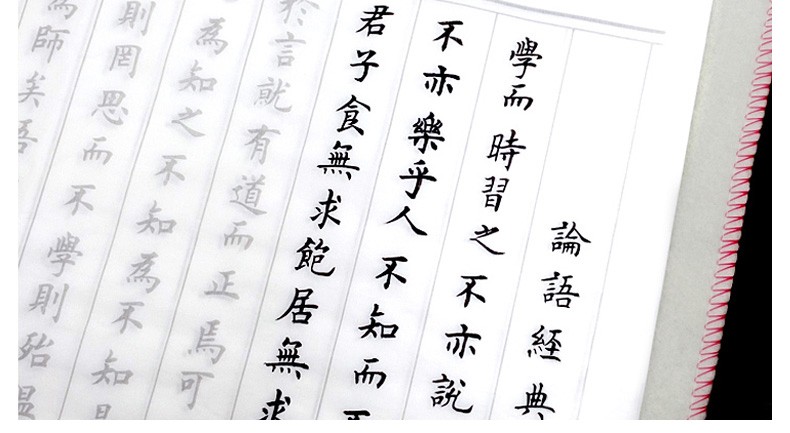 論語經典
學而時習之不亦說
不亦樂乎人不知而不
君子食無求飽居無求
於言就有道而正焉可
為知之不知為不知是
則罔思而不學則殆溫
為師矣吾